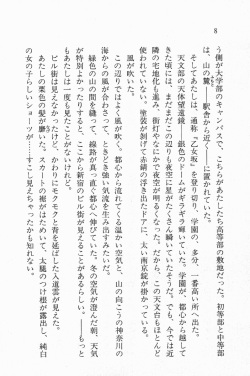 8
う側が大学部のキャンパスで、こちらがあたしたち高等部の敷地だった。初等部と中等部
は、山の麓——駅舎から近く——に置かれていた。
そしてあたしは、通称、乙女坂を登り切り、学園の、多分、一番高い所へ出た。
天文部の天体望遠鏡。銀色のドームがギラギラ輝いている。学園が、都心から越して
きた頃には、まだまだこの辺りも夜空に星がたくさん瞬いていたそうだ。でも、では近
隣の宅地化も進み、街灯やなにかで夜空が明るい。だから、この天文台もほとんど
使われていない。塗装が剥げて赤錆の浮き出たドアに、太い南京錠が掛かっている。
この辺りではよく風が吹く。都心から流れてくる温かい空気と、山の向こうの神奈川の
海からの風が合わさって、ときどき強い気流を生み出すみたいだ。
緑色の山の間を縫って、線路が真っ直ぐ都心へ伸びていた。冬の空気が澄んだ朝、天気
が特別よかったりすると、ここから新宿のビル街が見えることがある。——もっと
も、あたしは一度も見たことがないけれど。
ビル街は見えなかったけど、かわりにモクモクと背を延ばした入道雲が見えた。
あたしの栗色の髪が靡き、スカートの裾がはためいて、太腿のつけ根が露出し、純白
の女の子らしいショーツが……すこし見えちゃったかも知れない。